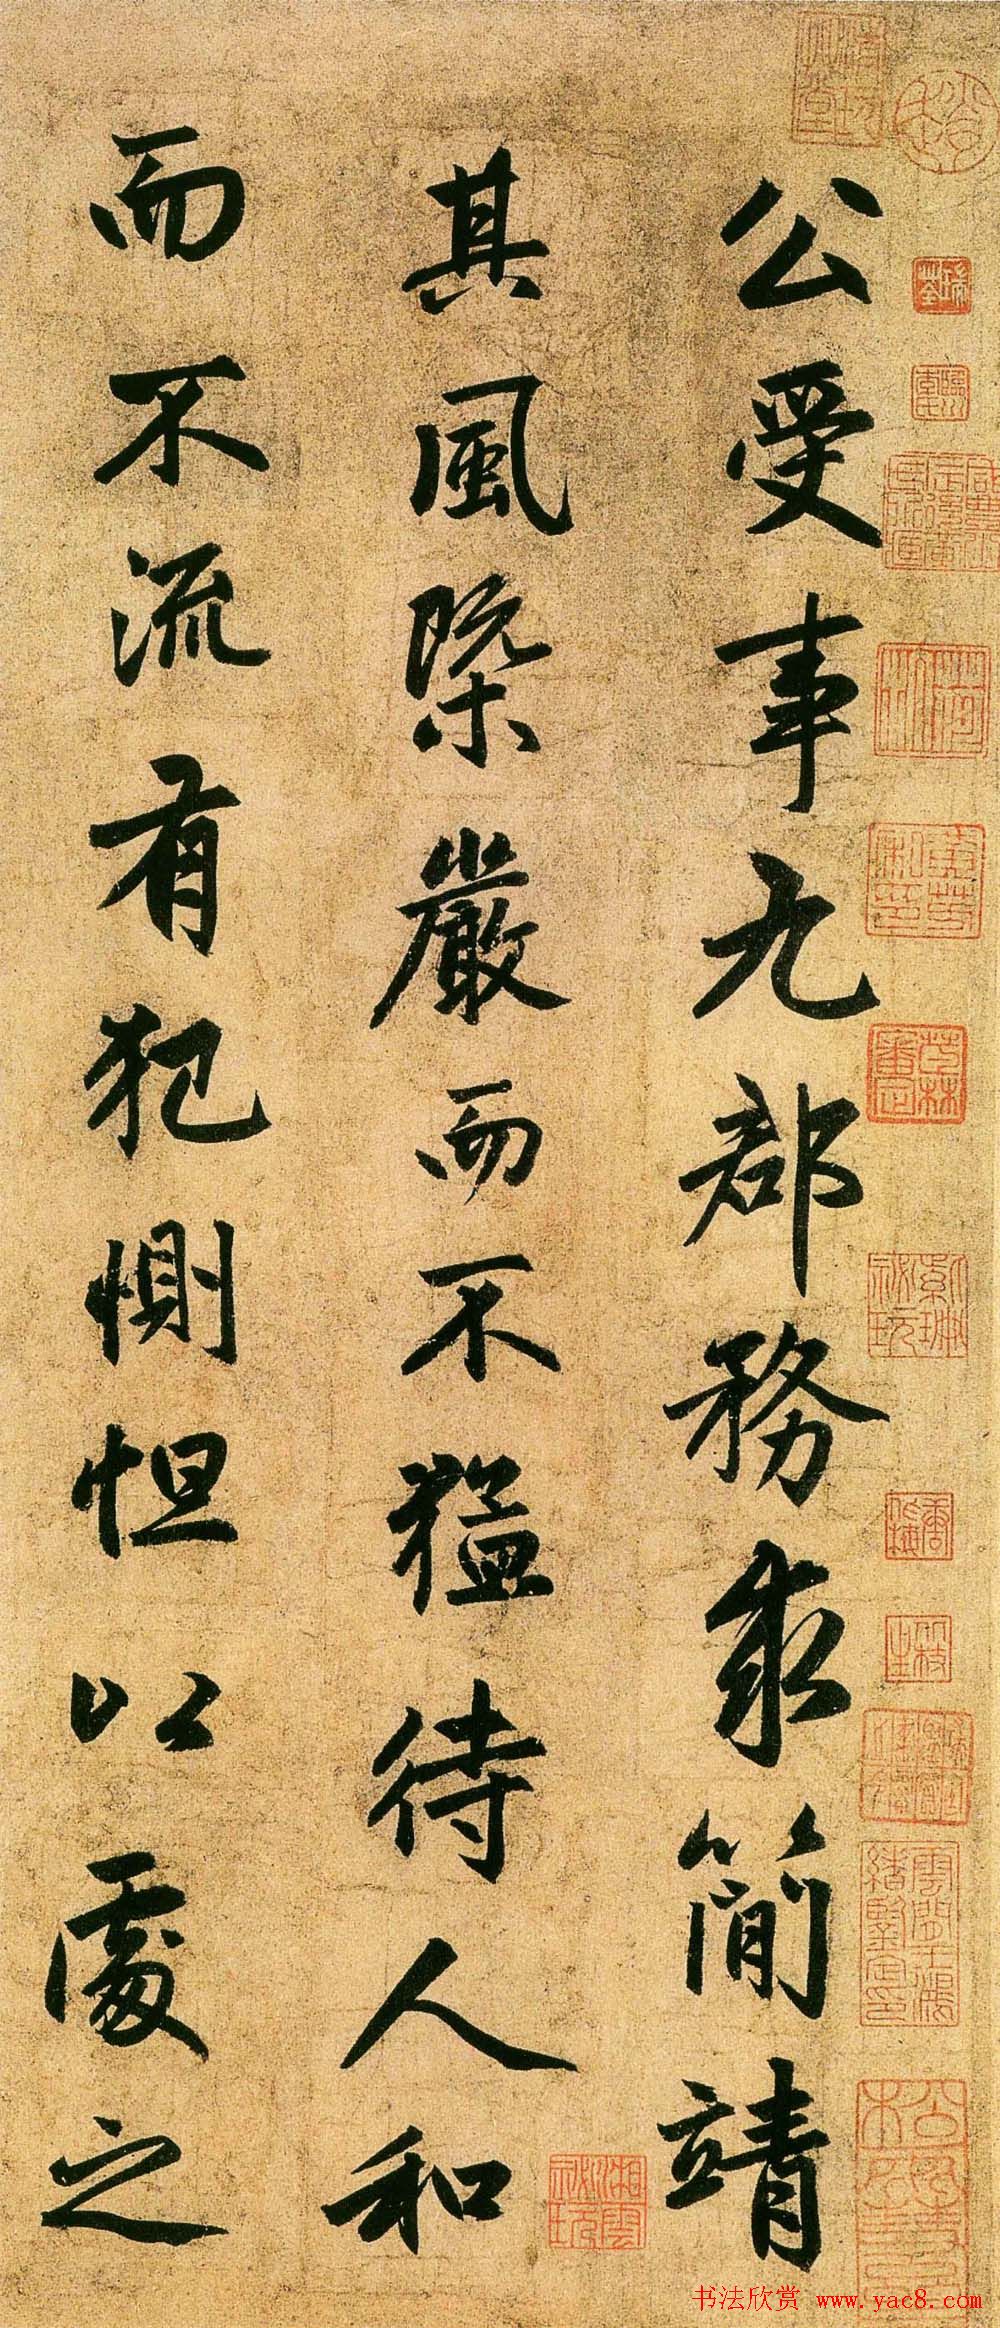 公受事尤郡務求簡靖
其風槩嚴而不猛待人和
而不流有犯惻怛以處之
湘雲秘玩
书法欣赏 www.yac8.com